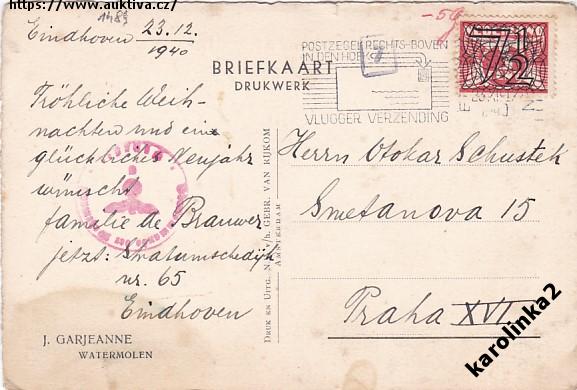 https://www.auktiva.cz/
1489
Eindhoven 23.12.
1940
BRIEFKAART
DRUKWERK
POSTZEGEL RECHTS-BOVEN
IN DEN HOEK
VLUGGER VERZENDING
7½
Fröhliche Weih-
nachten und ein
glückliches Neujahr
wünscht
familie de Brauwer
jetzt: Stratumschedijk
nr. 65
Eindhoven
Herrn Otokar Schustek
Smetanova 15
Praha XVI
J. GARJEANNE
WATERMOLEN
DRUK EN UITG. N.V. v/h. GEBR. VAN RIJKOM
AMSTERDAM
karolinka2